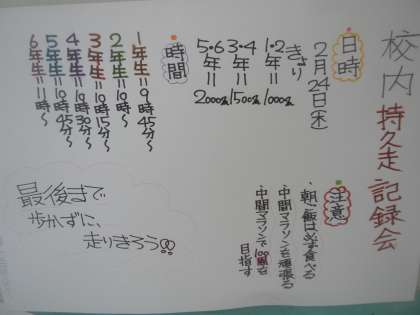 校内持久走記録会
日時
2月24日(木)
きょり
1・2年=1000m
3・4年=1500m
5・6年=2000m
時間
1年生=9時45分〜
2年生=10時〜
3年生=10時15分〜
4年生=10時30分〜
5年生=10時45分〜
6年生=11時〜
注意
・朝ご飯は必ず食べる
・中間マラソンを頑張る
・中間マラソンで100周を
目指す
最後まで
歩かずに、
走りきろう!!